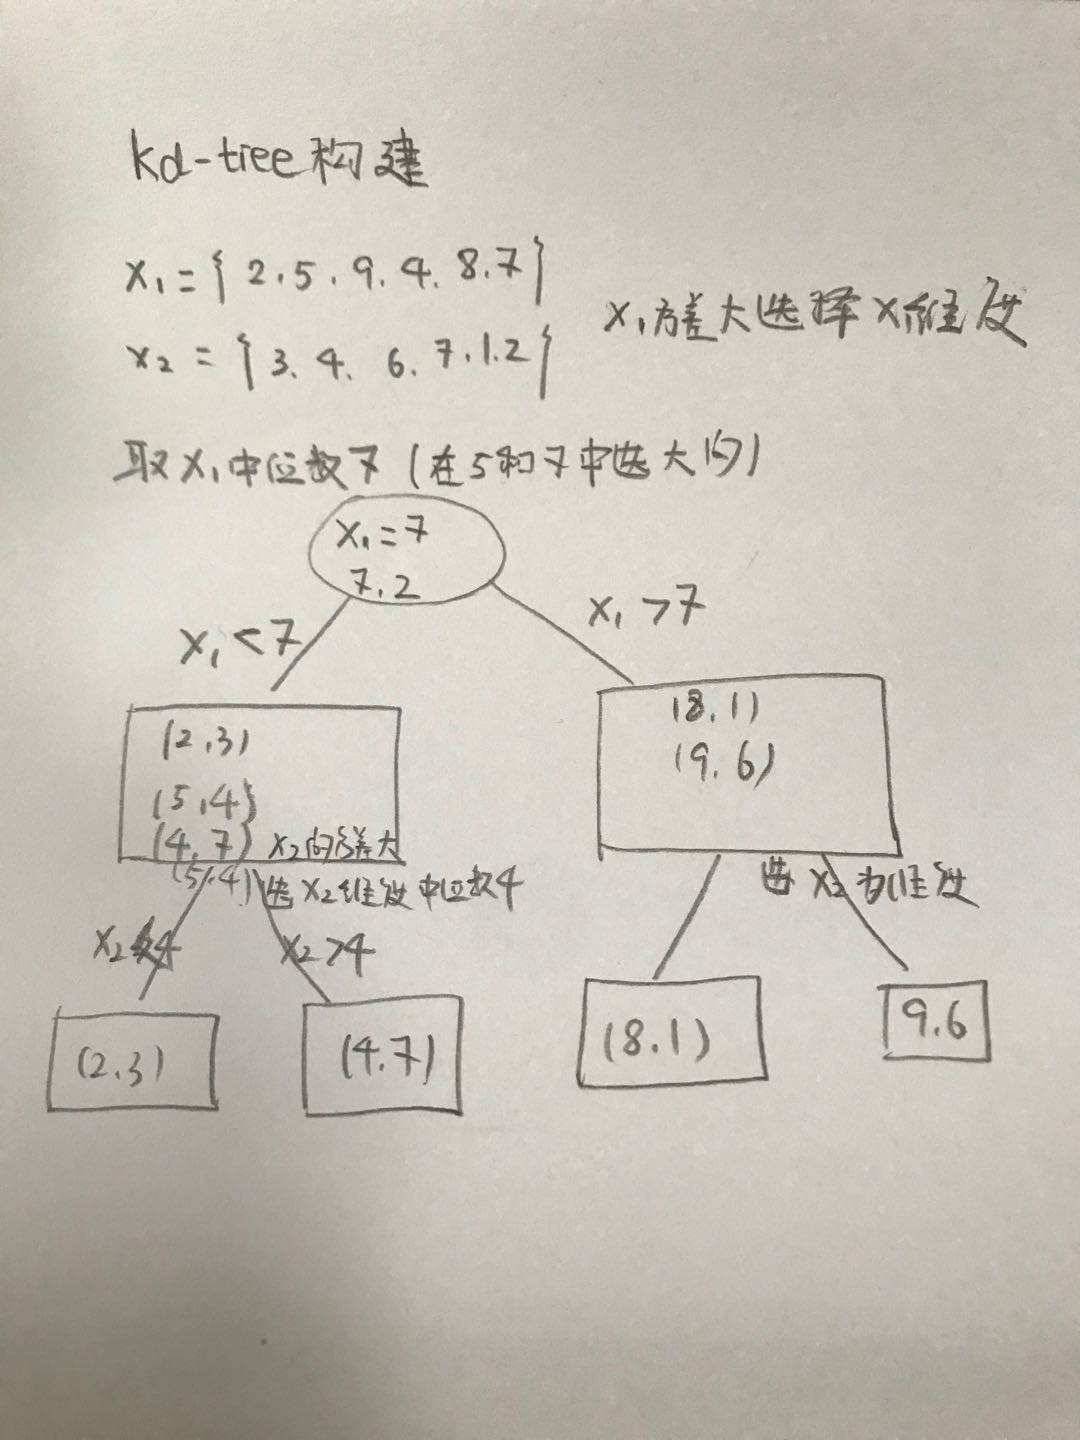 kd-tree构建
x₁={2.5.9.4.8.7}
x₁方差大选择x₁维度
x₂={3.4.6.7.1.2}
取x₁中位数7(在5和7中选大的)
x₁=7
7.2
x₁<7
x₁>7
(2.3)
(5.4)
(4.7) x₂的方差大
(5.4) 选x₂维度中位数4
(8.1)
(9.6)
选x₂为维度
x₂<4
x₂>4
(2.3)
(4.7)
(8.1)
9.6